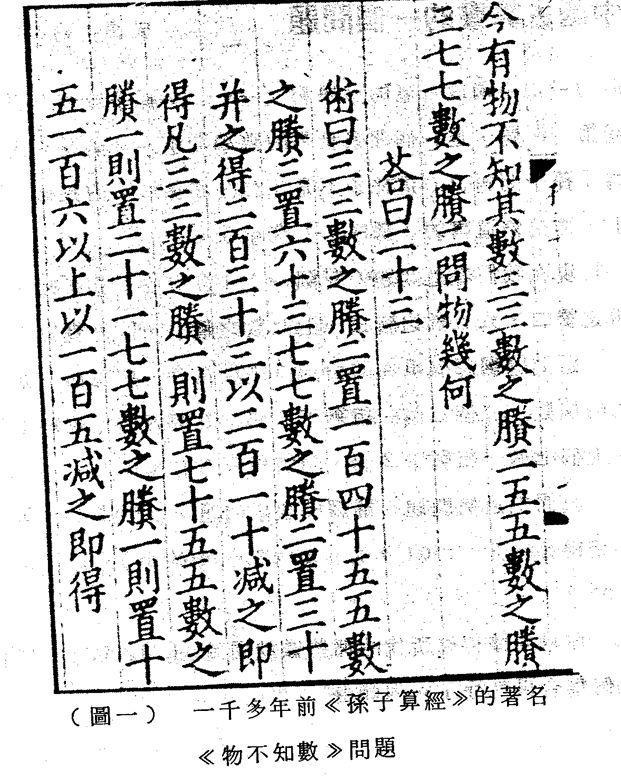 今有物不知其數三三數之賸二五五數之賸
三七七數之賸二問物幾何
荅曰二十三
術曰三三數之賸二置一百四十五五數
之賸三置六十三七七數之賸二置三十
并之得二百三十三以二百一十減之即
得凡三三數之賸一則置七十五五數之
賸一則置二十一七七數之賸一則置十
五一百六以上以一百五減之即得
(圖一) 一千多年前《孫子算經》的著名
《物不知數》問題